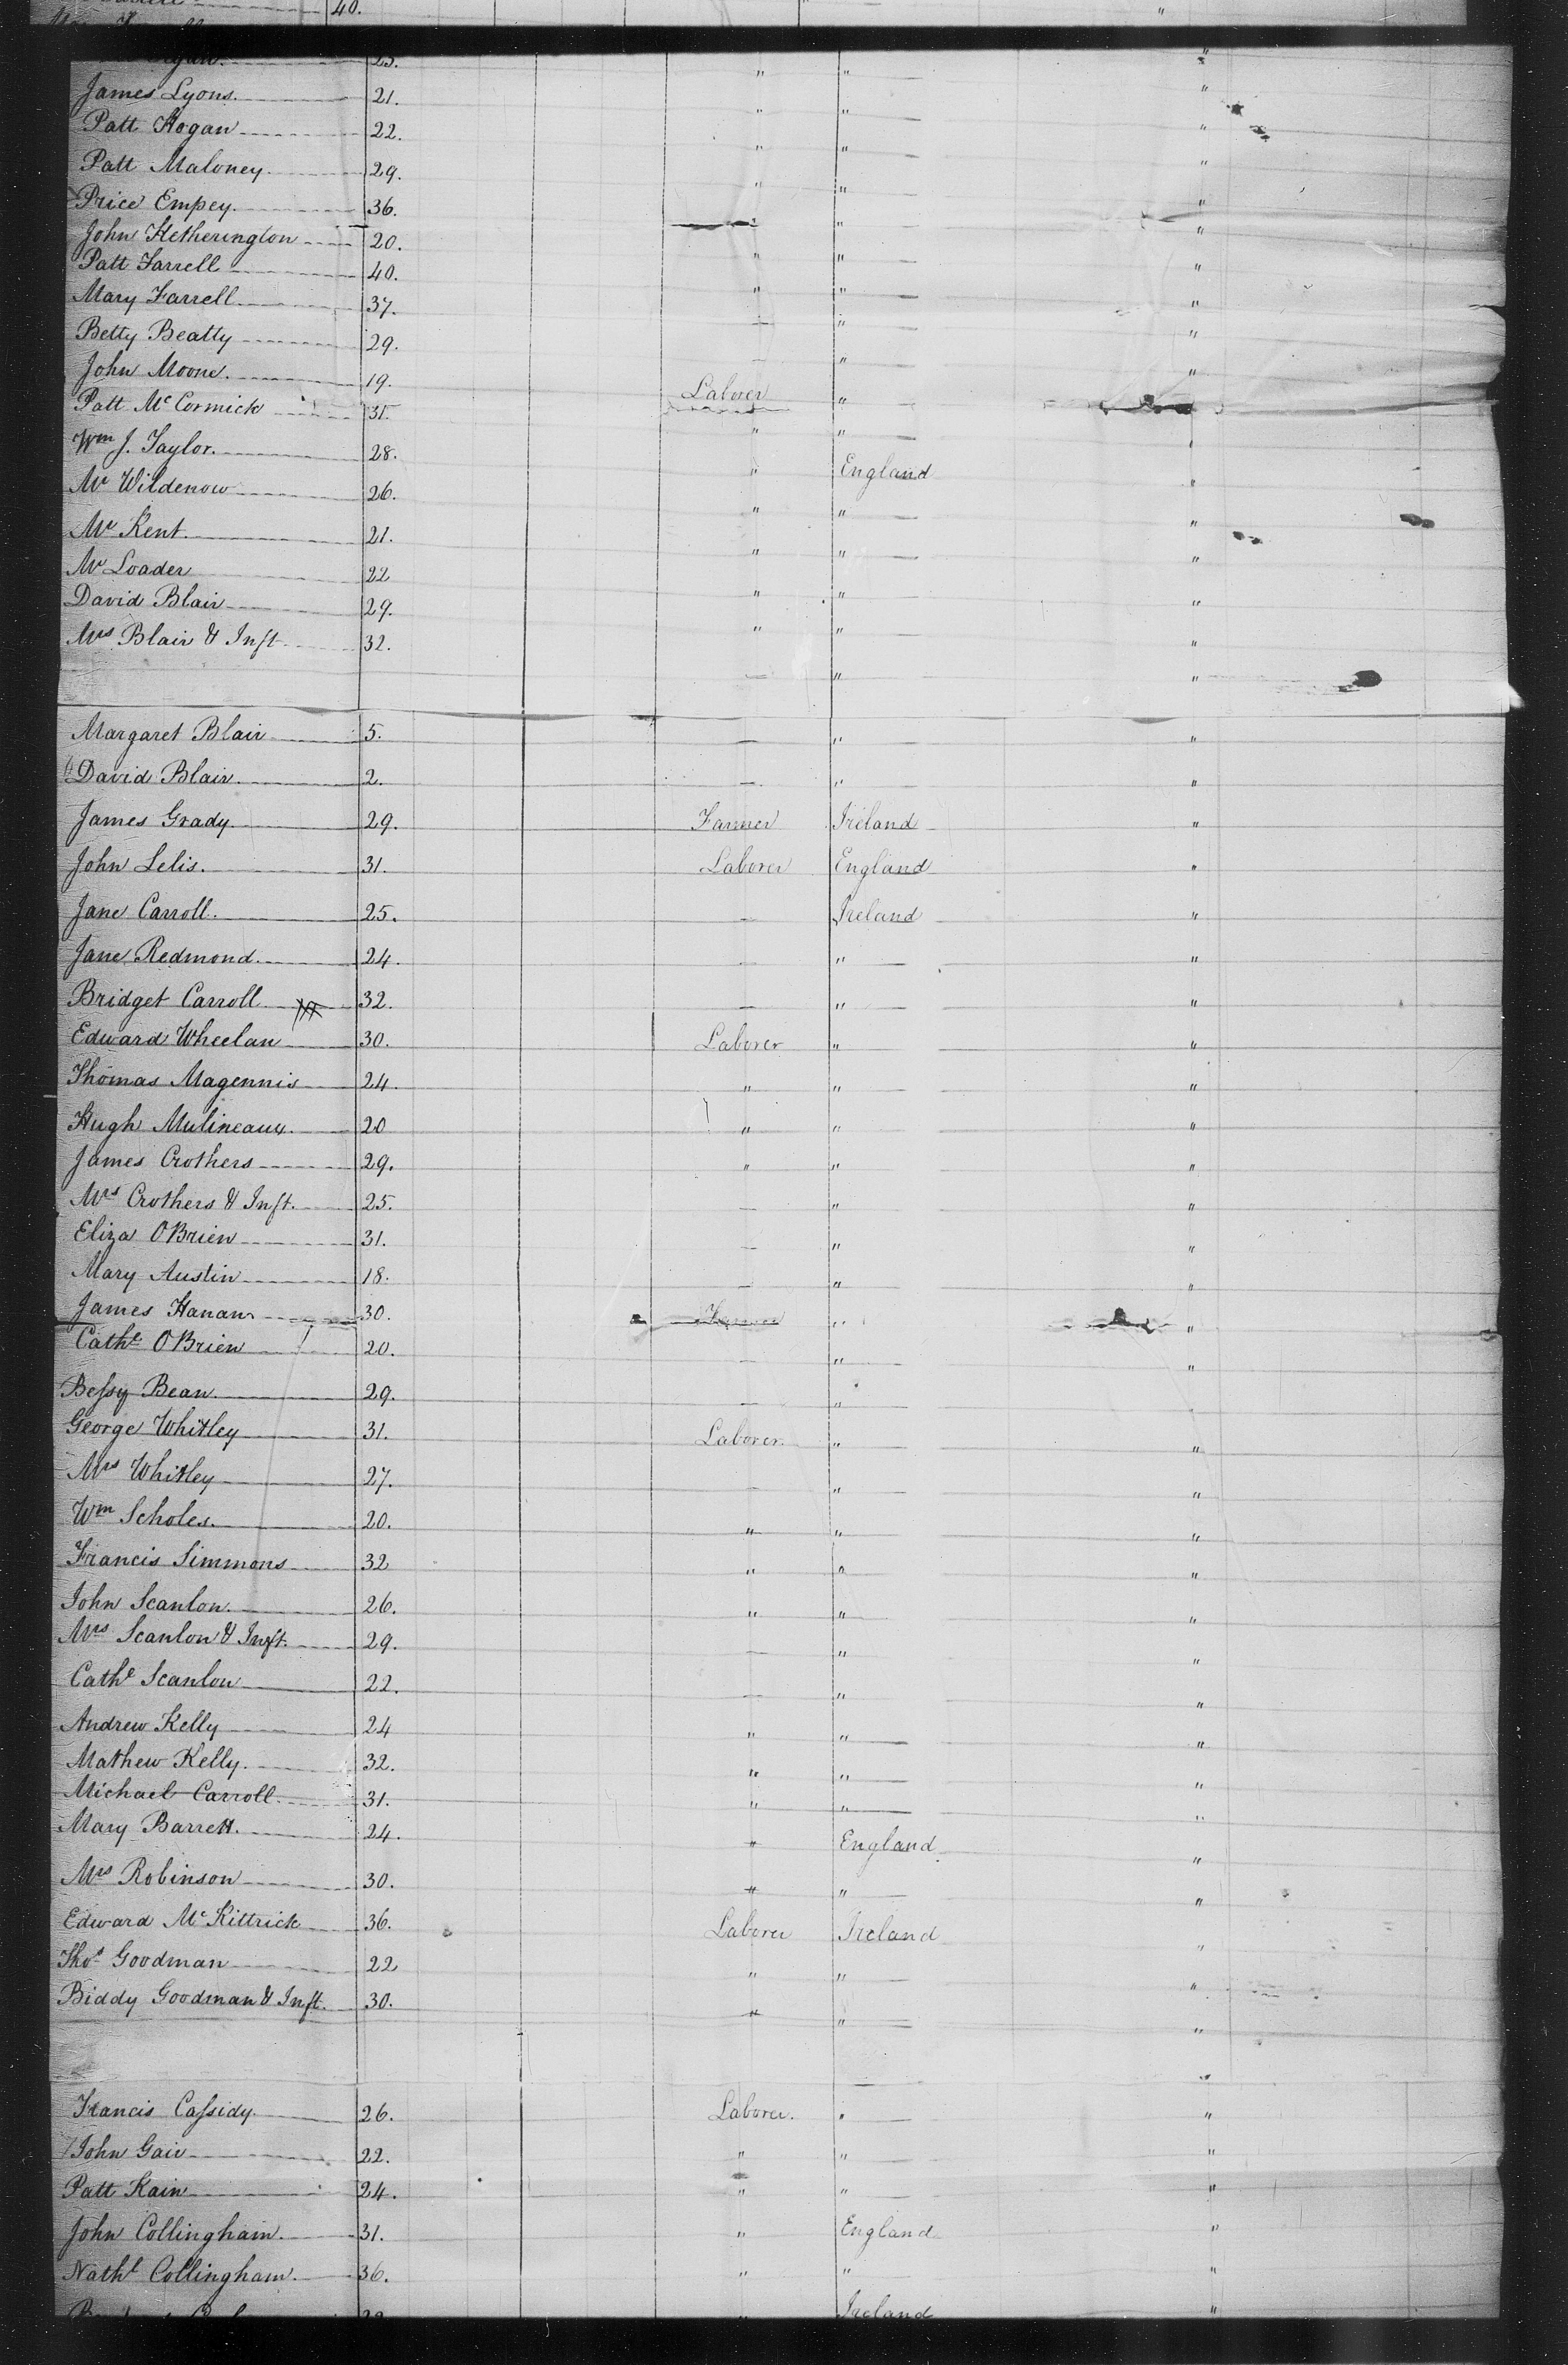 40. "
23. " " "
James Lyons. 21. " " "
Patt Hogan 22. " " "
Patt Maloney. 29. " " "
Price Empey. 36. " "
John Hetherington 20. " " "
Patt Farrell 40. " " "
Mary Farrell 37. — " "
Betty Beatty 29. — " "
John Moone. 19. Laborer "
Patt McCormick 31. " " "
Wm J. Taylor. 28. " England "
Mr Wildenow 26. " " "
Mr Kent. 21. " " "
Mr Loader 22 " " "
David Blair 29. " " "
Mrs Blair & Inft 32. — " "
Margaret Blair 5. — " "
David Blair. 2. — " "
James Grady. 29. Farmer Ireland "
John Lelis. 31. Laborer England "
Jane Carroll. 25. — Ireland "
Jane Redmond. 24. — " "
Bridget Carroll 32. — " "
Edward Wheelan 30. Laborer " "
Thomas Magennis 24. " " "
Hugh Mulineaux. 20 " " "
James Crothers 29. " " "
Mrs Crothers & Inft. 25. — " "
Eliza OBrien 31. — " "
Mary Austin 18. — " "
James Hanan 30. Farmer " "
Cathe OBrien 20. — " "
Bessy Bean. 29. — "
George Whitley 31. Laborer. " "
Mrs Whitley 27. — " "
Wm Scholes. 20. " " "
Francis Simmons 32 " " "
John Scanlon. 26. " " "
Mrs Scanlon & Inft. 29. — " "
Cathe Scanlon 22. — " "
Andrew Kelly 24 " " "
Mathew Kelly. 32. " " "
Michael Carroll. 31. " " "
Mary Barrett. 24. " England "
Mrs Robinson 30. " " "
Edward McKittrick 36. Laborer Ireland "
Thos Goodman 22 " " "
Biddy Goodman & Inft. 30. " " "
Francis Cassidy. 26. Laborer. " "
John Gair 22. " " "
Patt Kain 24. " " "
John Collingham. 31. " England "
Nathl Collingham. 36. " " "
" Ireland "